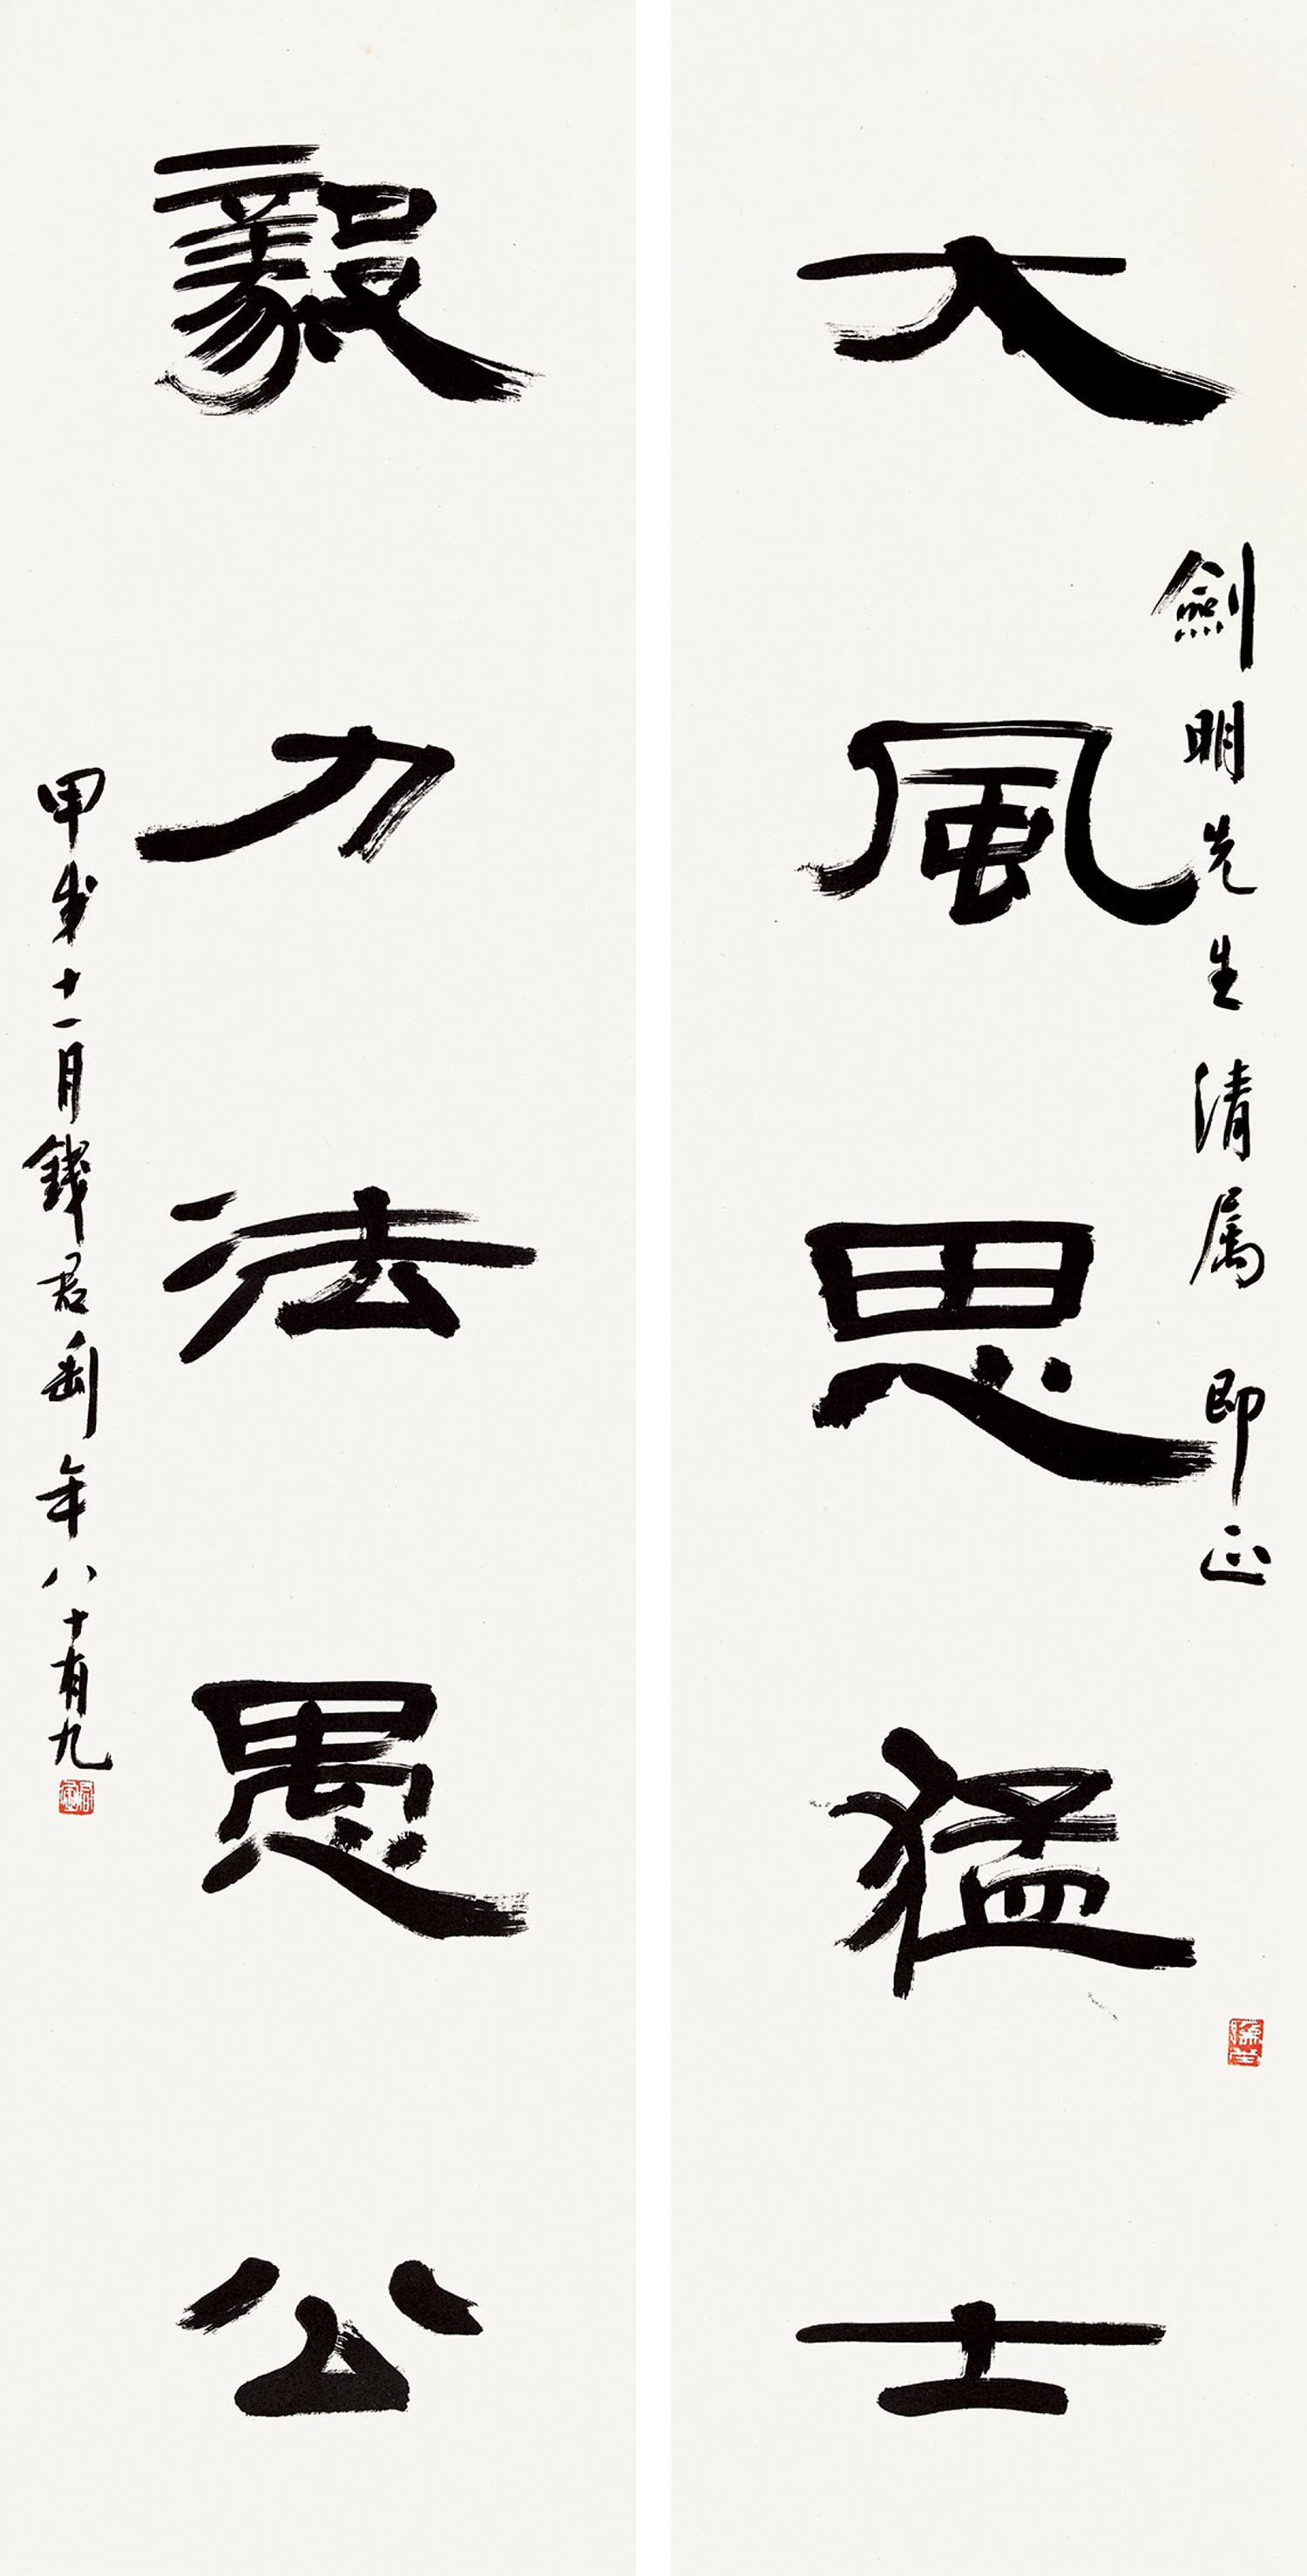 大風思猛士
劍明先生清属即正
毅力法愚公
甲戌十一月錢君匋年八十有九